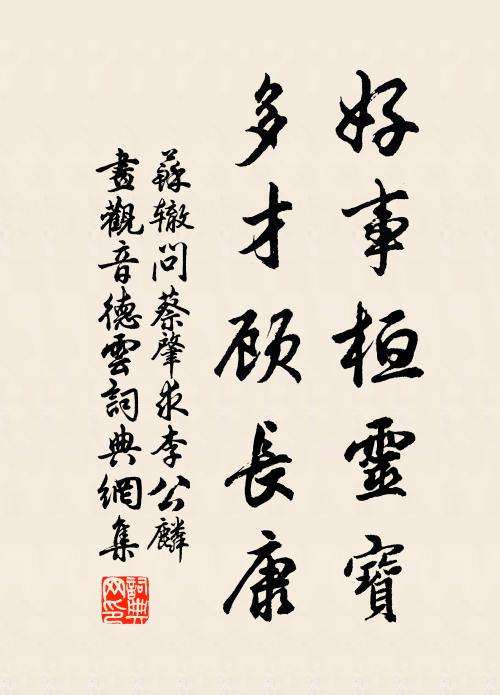 好事桓靈寶
多才顾長康
蘇辙問蔡肇求李公麟
畫觀音德雲詞典網集
詞典
网印